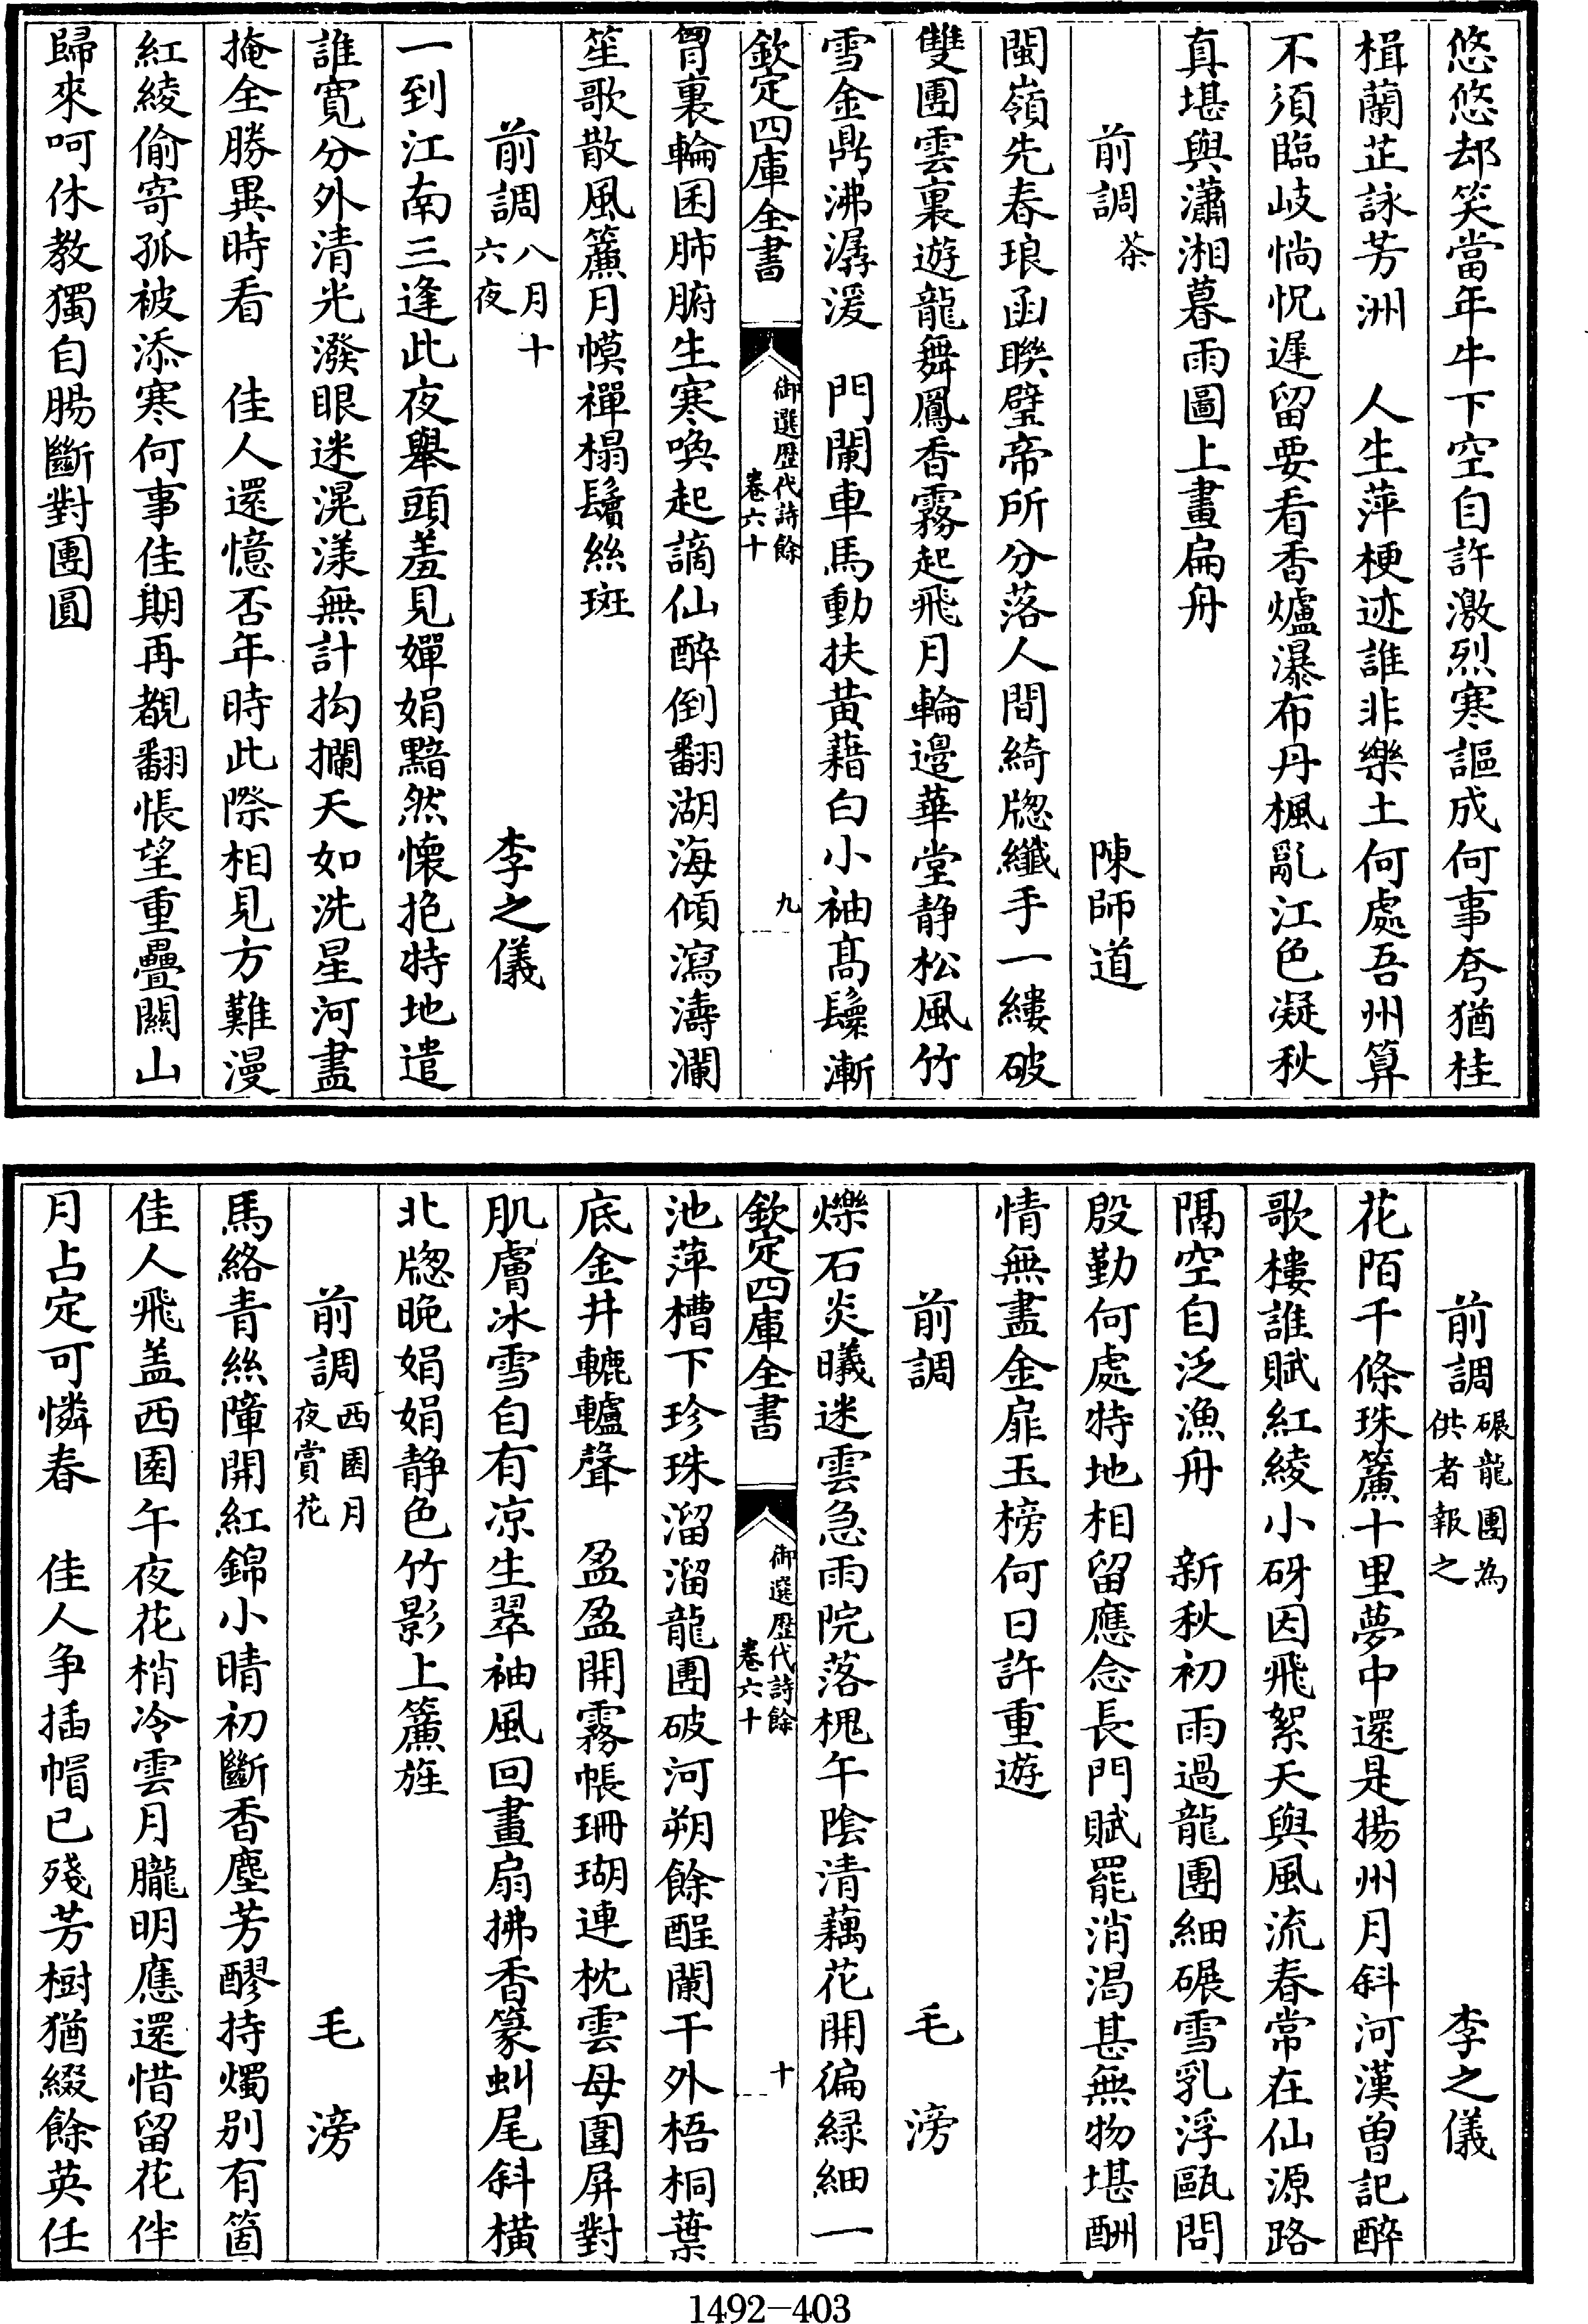 悠悠却笑當年牛下空自許激烈寒謳成何事夸猶桂
楫蘭芷詠芳洲　人生萍梗迹誰非樂土何處吾州算
不須臨岐惝怳遲留要看香爐瀑布丹楓亂江色凝秋
真堪與瀟湘暮雨圖上畫扁舟
前調茶　陳師道
閩嶺先春琅函聯璧帝所分落人間綺牕纖手一縷破
雙團雲裏遊龍舞鳳香霧起飛月輪邊華堂静松風竹
雪金鼎沸潺湲　門闌車馬動扶黃藉白小袖髙鬟漸
欽定四庫全書　御選歷代詩餘卷六十　九
胷裏輪囷肺腑生寒喚起謫仙醉倒翻湖海傾瀉濤瀾
笙歌散風簾月幙禪榻鬢絲斑
前調八月十六夜　李之儀
一到江南三逢此夜舉頭羞見嬋娟黯然懷抱特地遣
誰寛分外清光潑眼迷滉漾無計拘攔天如洗星河盡
掩全勝異時看　佳人還憶否年時此際相見方難漫
紅綾偷寄孤被添寒何事佳期再覩翻悵望重疊關山
歸來呵休教獨自腸斷對團圓
前調碾龍團為供者報之　李之儀
花陌千條珠簾十里夢中還是揚州月斜河漢曽記醉
歌樓誰賦紅綾小砑因飛絮天與風流春常在仙源路
隔空自泛漁舟　新秋初雨過龍團細碾雪乳浮甌問
殷勤何處特地相留應念長門賦罷消渇甚無物堪酬
情無盡金扉玉榜何日許重遊
前調　毛滂
爍石炎曦迷雲急雨院落槐午陰清藕花開徧緑細一
欽定四庫全書　御選歷代詩餘卷六十　十
池萍槽下珍珠溜溜龍團破河朔餘酲闌干外梧桐葉
底金井轆轤聲　盈盈開霧帳珊瑚連枕雲母圍屏對
肌膚冰雪自有凉生翠袖風回畫扇拂香篆虯尾斜橫
北牕晚娟娟静色竹影上簾旌
前調西園月夜賞花　毛滂
馬絡青絲障開紅錦小晴初斷香塵芳醪持燭别有箇
佳人飛盖西園午夜花梢冷雲月朧明應還惜留花伴
月占定可憐春　佳人争插帽已殘芳樹猶綴餘英任
1492—403